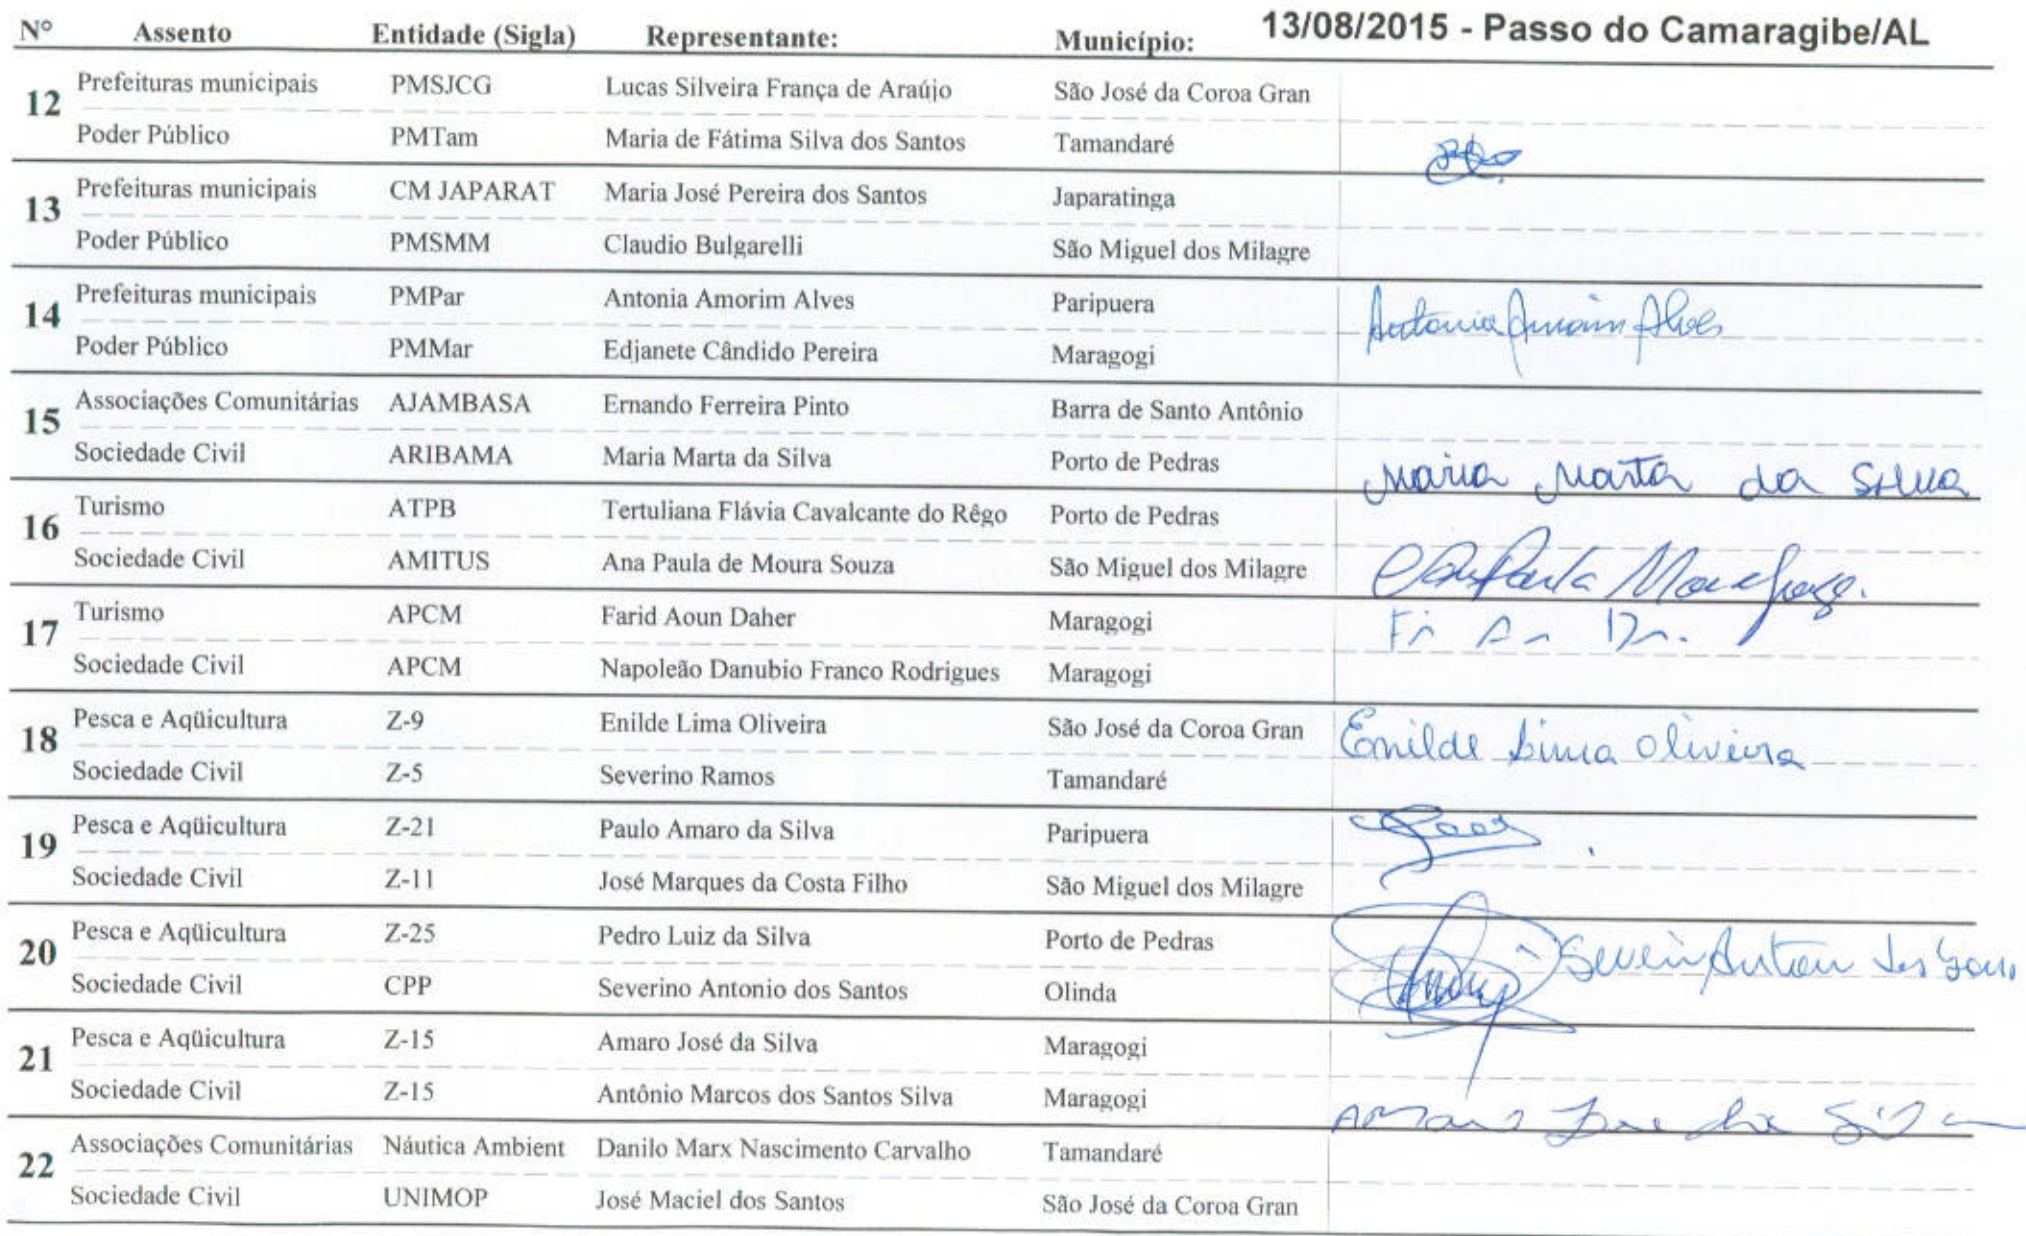 Nº Assento Entidade (Sigla) Representante: Município: 13/08/2015 - Passo do Camaragibe/AL
12 Prefeituras municipais PMSJCG Lucas Silveira França de Araújo São José da Coroa Gran
Poder Público PMTam Maria de Fátima Silva dos Santos Tamandaré
13 Prefeituras municipais CM JAPARAT Maria José Pereira dos Santos Japaratinga
Poder Público PMSMM Claudio Bulgarelli São Miguel dos Milagre
14 Prefeituras municipais PMPar Antonia Amorim Alves Paripuera Antonia Amorim Alves
Poder Público PMMar Edjanete Cândido Pereira Maragogi
15 Associações Comunitárias AJAMBASA Ernando Ferreira Pinto Barra de Santo Antônio
Sociedade Civil ARIBAMA Maria Marta da Silva Porto de Pedras Maria Marta da Silva
16 Turismo ATPB Tertuliana Flávia Cavalcante do Rêgo Porto de Pedras
Sociedade Civil AMITUS Ana Paula de Moura Souza São Miguel dos Milagre Ana Paula Moura Souza.
17 Turismo APCM Farid Aoun Daher Maragogi
Sociedade Civil APCM Napoleão Danubio Franco Rodrigues Maragogi
18 Pesca e Aqüicultura Z-9 Enilde Lima Oliveira São José da Coroa Gran Enilde Lima Oliveira
Sociedade Civil Z-5 Severino Ramos Tamandaré
19 Pesca e Aqüicultura Z-21 Paulo Amaro da Silva Paripuera
Sociedade Civil Z-11 José Marques da Costa Filho São Miguel dos Milagre
20 Pesca e Aqüicultura Z-25 Pedro Luiz da Silva Porto de Pedras
Sociedade Civil CPP Severino Antonio dos Santos Olinda
21 Pesca e Aqüicultura Z-15 Amaro José da Silva Maragogi
Sociedade Civil Z-15 Antônio Marcos dos Santos Silva Maragogi Amaro José da Silva
22 Associações Comunitárias Náutica Ambient Danilo Marx Nascimento Carvalho Tamandaré
Sociedade Civil UNIMOP José Maciel dos Santos São José da Coroa Gran